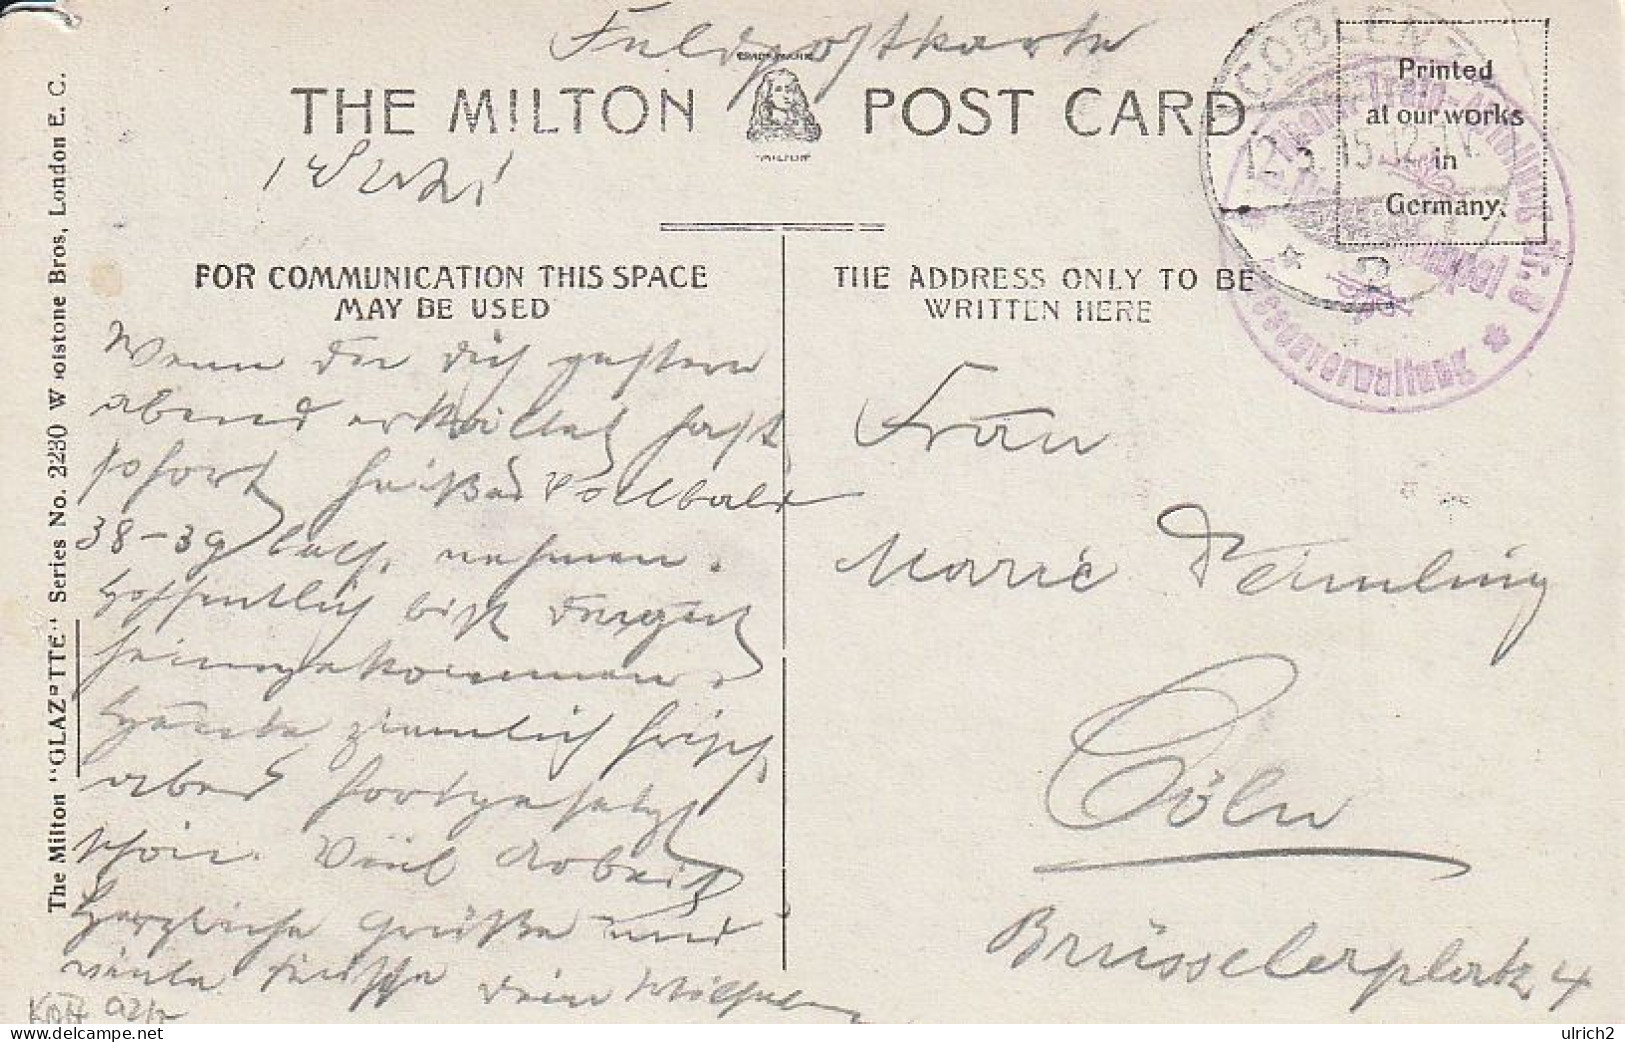 Feldpostkarte
THE MILTON POST CARD.
TRADE MARK
"MILTON"
Printed
at our works
in
Germany.
COBLENZ
12.5.15.12-1 V.
Train-Abteilung Nr. 8
FOR COMMUNICATION THIS SPACE
MAY BE USED
THE ADDRESS ONLY TO BE
WRITTEN HERE
Wenn Du Dich gestern
abend erkältet hast,
sofort heißes Vollbad
38-39 nehmen.
Hoffentlich bist Du gut
heimgekommen.
Heute ziemlich frisch,
aber fortgesetzt
schön. Viel Arbeit
Herzliche Grüße und
viele Küsse Dein Wilhelm
Frau
Marie
Cöln
Brüsselerplatz 4
The Milton "GLAZETTE" Series No. 2230 Woolstone Bros, London E. C.
ulrich2